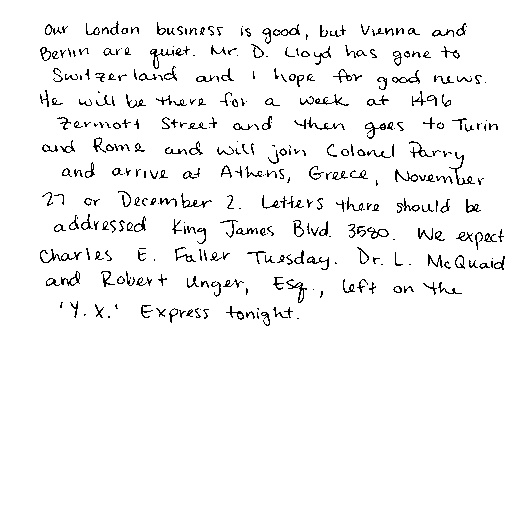 Our London business is good, but Vienna and
Berlin are quiet. Mr. D. Lloyd has gone to
Switzerland and I hope for good news.
He will be there for a week at 1496
Zermott Street and then goes to Turin
and Rome and will join Colonel Parry
and arrive at Athens, Greece, November
27 or December 2. Letters there should be
addressed King James Blvd. 3580. We expect
Charles E. Fuller Tuesday. Dr. L. McQuaid
and Robert Unger, Esq., left on the
'Y.X.' Express tonight.